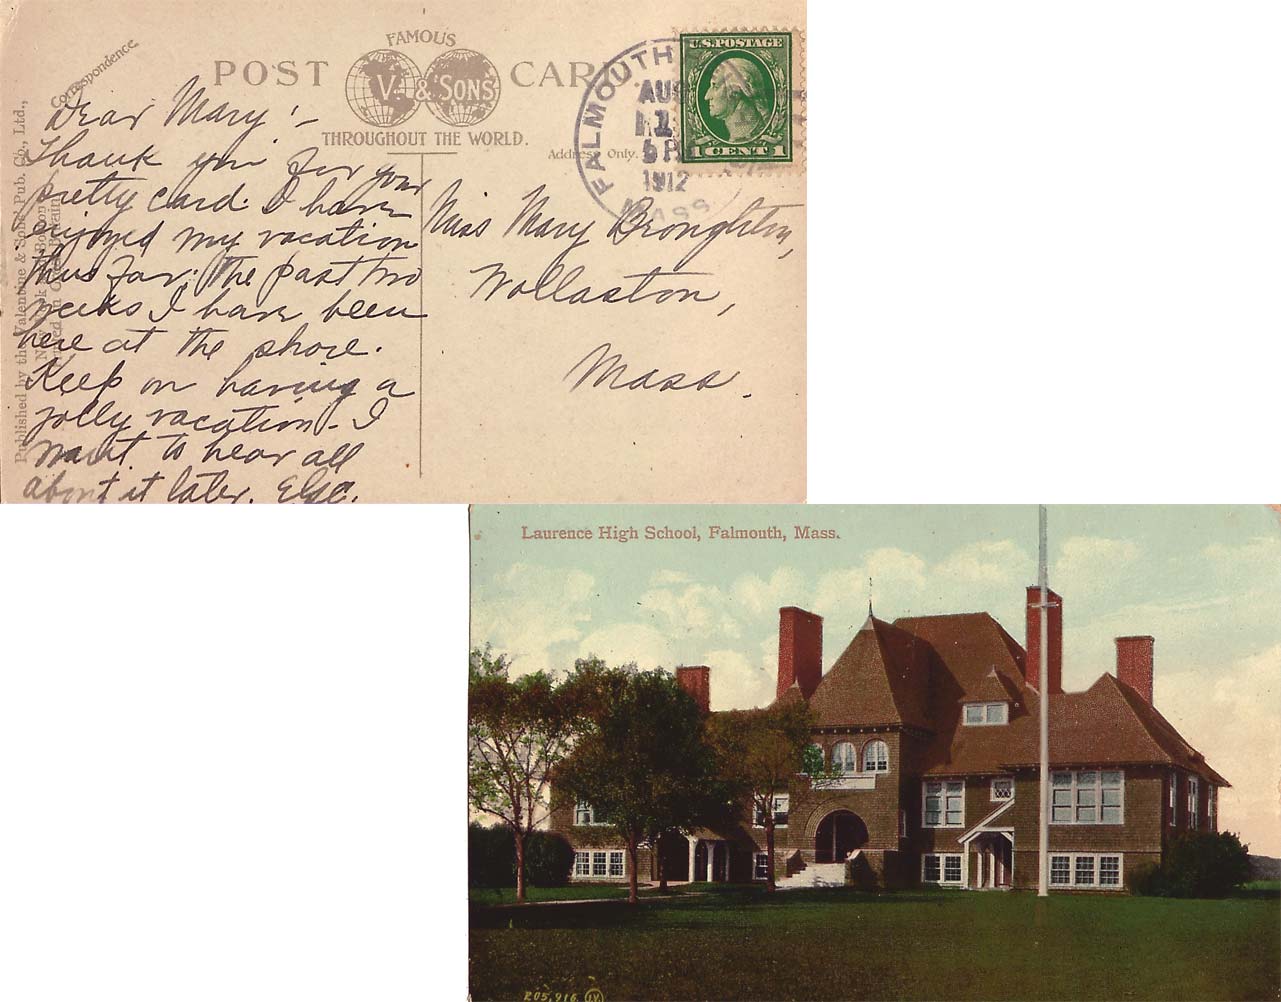 FAMOUS
POST V. & SONS CARD
THROUGHOUT THE WORLD.
Correspondence
Address Only.
U.S. POSTAGE
1 CENT 1
FALMOUTH
AUG
1
5 P
1912
MASS
Published by the Valentine & Sons' Pub. Co., Ltd.,
Dear Mary!-
Thank you for your
pretty card. I have
enjoyed my vacation
thus far; the past two
weeks I have been
here at the shore.
Keep on having a
jolly vacation - I
want to hear all
about it later.
Miss Mary Broughton,
Wollaston,
Mass.
Laurence High School, Falmouth, Mass.
205,916